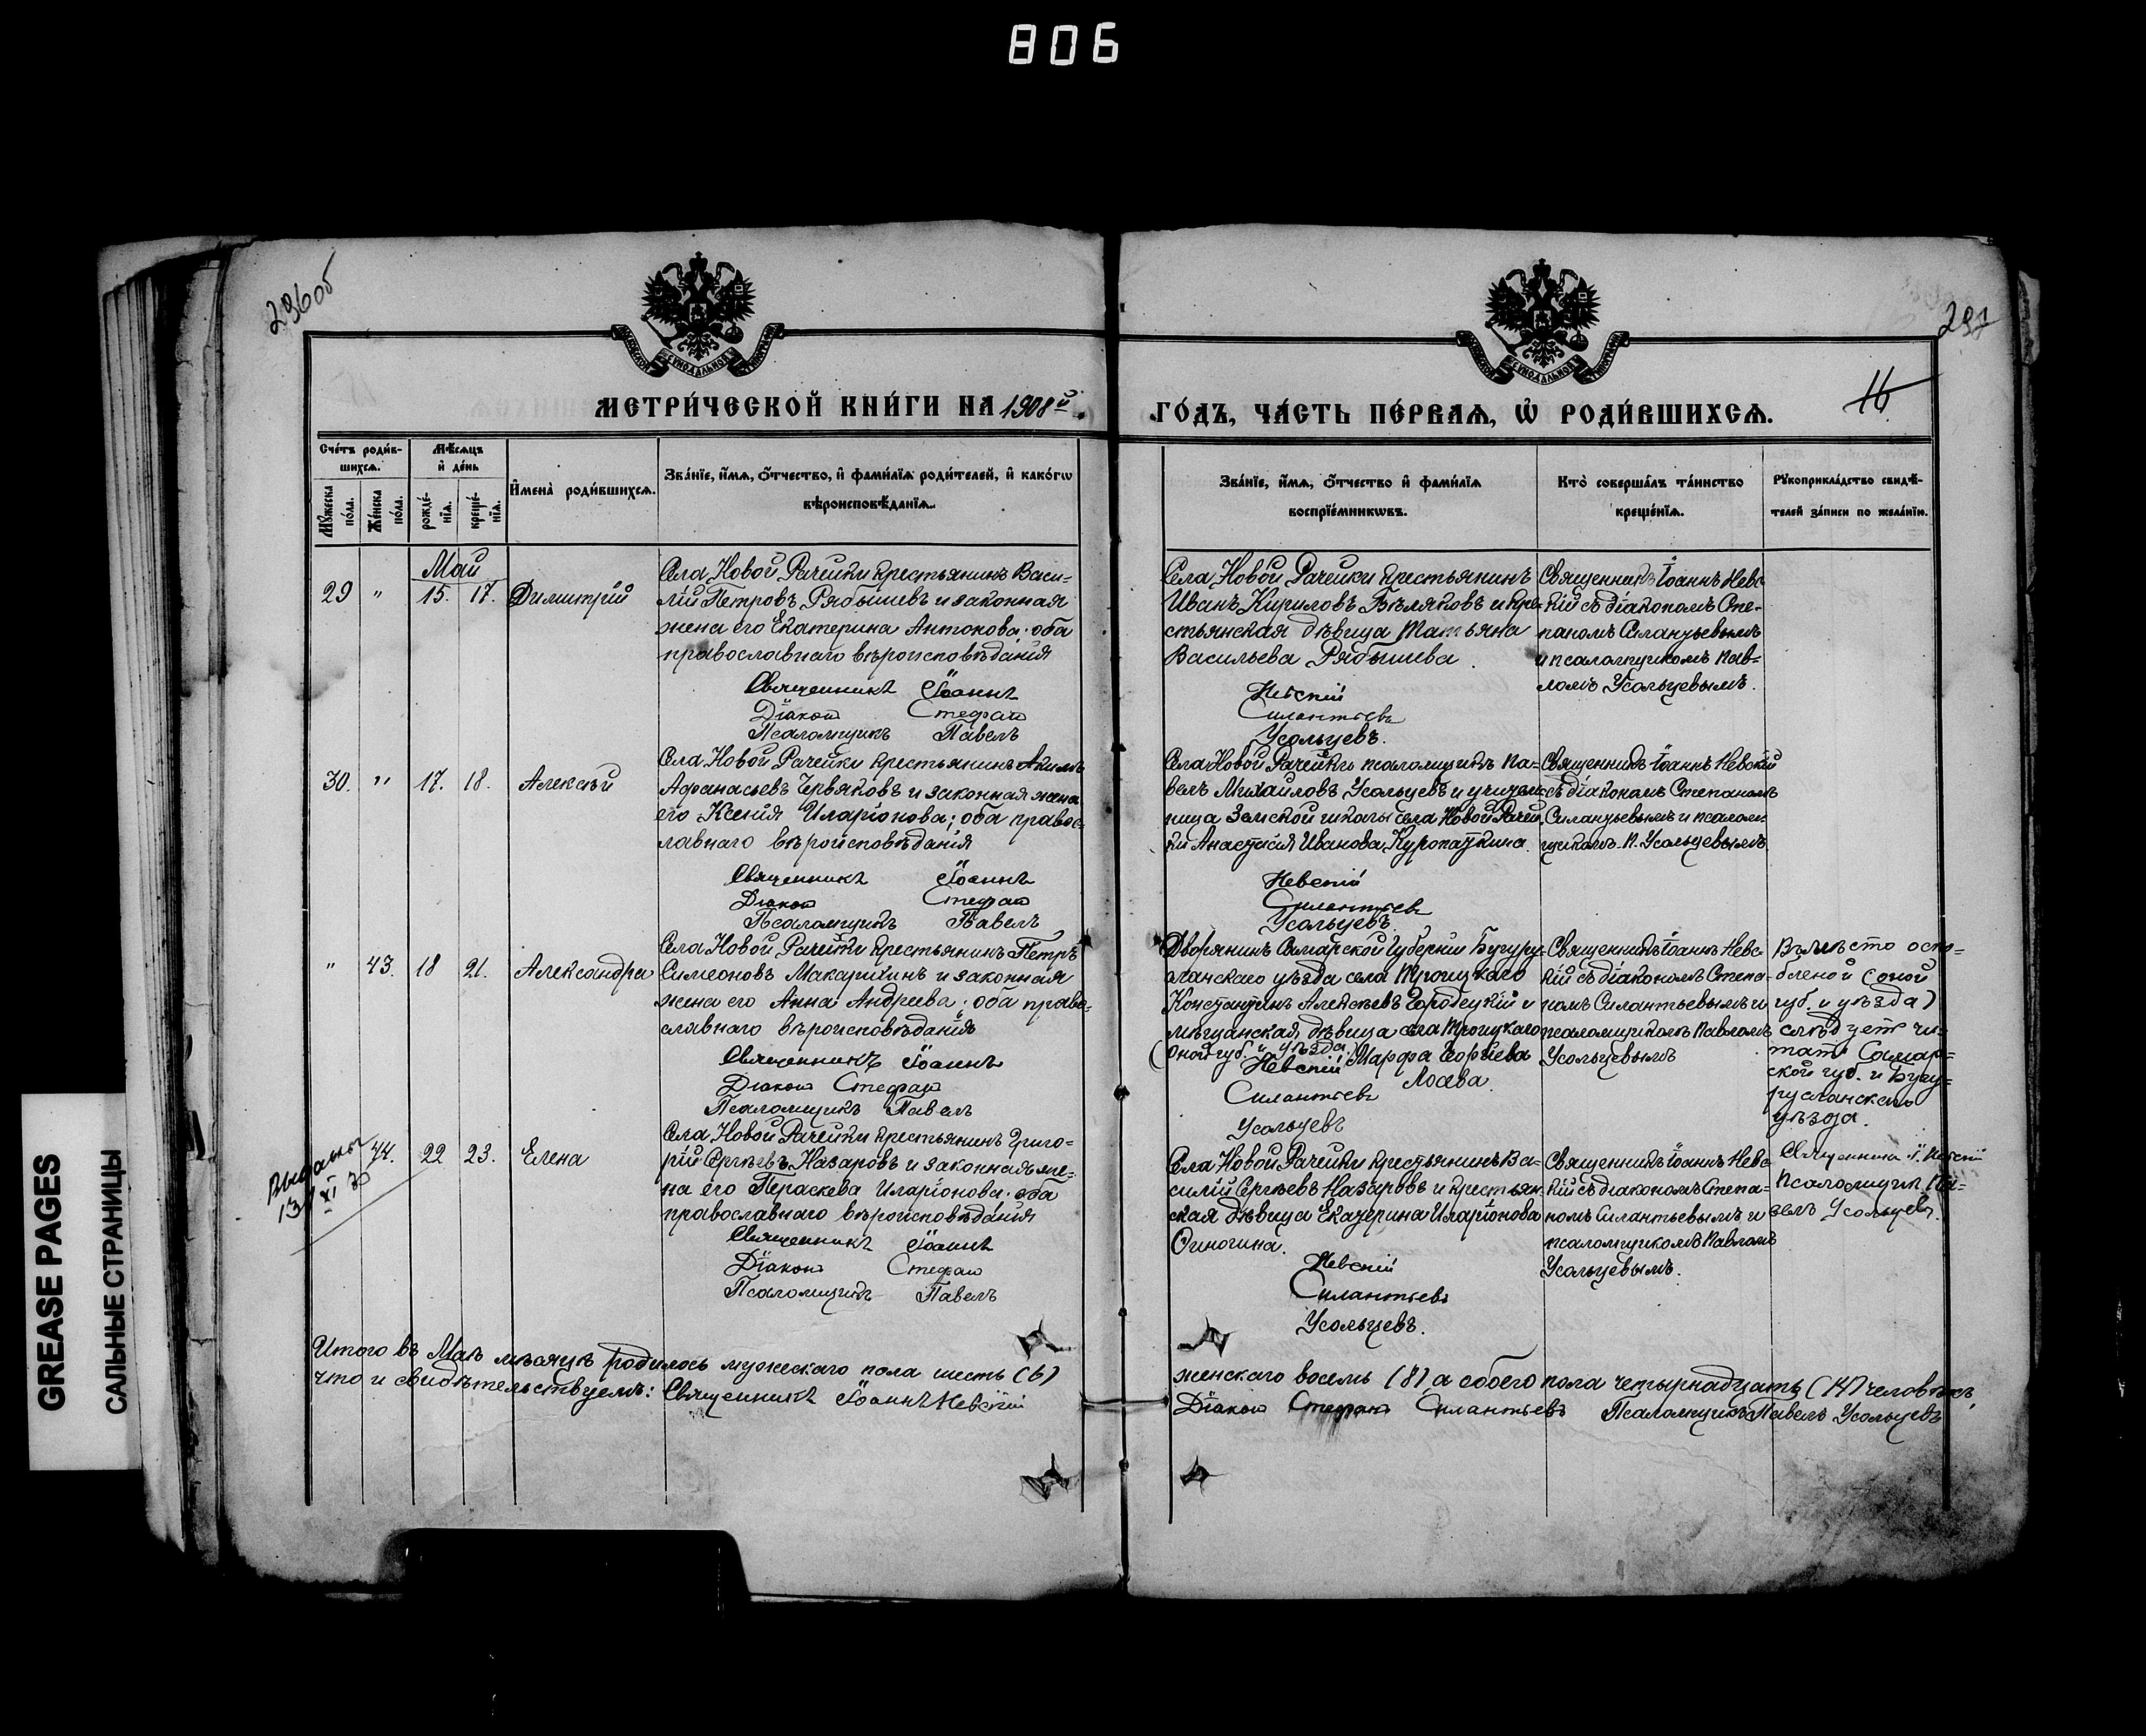 806
296об
297
16
МЕТРИ́ЧЕСКОЙ КНИ́ГИ НА 1908й
ГО́ДЪ, ЧА́СТЬ ПЕ́РВАѦ, Ѡ҆ РОДИ́ВШИХСѦ.
Сче́тъ роди́в-
шихсѧ.
Мꙋ́жеска по́ла.
Же́нска по́ла.
Мѣ́сѧцъ
и҆ де́нь
рожде́-
нїѧ.
креще́-
нїѧ.
И҆мена̀ роди́вшихсѧ.
Зва́нїе, и҆́мѧ, ѻ҆́тчество, и҆ фами́лїѧ роди́телей, и҆ како́гѡ
вѣроисповѣ́данїѧ.
Зва́нїе, и҆́мѧ, ѻ҆́тчество и҆ фами́лїѧ
воспрїе́мникѡвъ.
Кто̀ соверша́лъ та́инство
креще́нїѧ.
Рꙋкоприкла́дство свидѣ́-
телей за́писи по жела́нїю.
Май
29 " 15. 17. Димитрій
Села Новой Рачейки крестьянинъ Васи-
лій Петровъ Рябышевъ и законная
жена его Екатерина Антонова; оба
православнаго вѣроисповѣданія
Священникъ Іоаннъ
Діаконъ Стефанъ
Псаломщикъ Павелъ
Села Новой Рачейки крестьянинъ
Иванъ Кириловъ Бѣляковъ и кре-
стьянская дѣвица Татьяна
Васильева Рябышева.
Невскій
Силантьевъ
Усольцевъ.
Священникъ Іоаннъ Невс-
кій съ діакономъ Сте-
паномъ Силантьевымъ
и псаломщикомъ Пав-
ломъ Усольцевымъ.
30. " 17. 18. Алексѣй
Села Новой Рачейки крестьянинъ Акимъ
Афанасьевъ Червяковъ и законная жена
его Ксенія Иларіонова; оба правос-
лавнаго вѣроисповѣданія
Священникъ Іоаннъ
Діаконъ Стефанъ
Псаломщикъ Павелъ
Села Новой Рачейки псаломщикъ Па-
велъ Михайловъ Усольцевъ и учитель-
ница Земской школы села Новой Рачей-
ки Анастасія Иванова Куропаткина.
Невскій
Силантьевъ
Усольцевъ.
Священникъ Іоаннъ Невскій
съ діакономъ Степаномъ
Силантьевымъ и псалом-
щикомъ П. Усольцевымъ
" 43. 18 21. Александра
Села Новой Рачейки крестьянинъ Петръ
Симеоновъ Макарихинъ и законная
жена его Анна Андреева; оба право-
славнаго вѣроисповѣданія
Священникъ Іоаннъ
Діаконъ Стефанъ
Псаломщикъ Павелъ
Дворянинъ Самарской Губерніи Бугуру-
сланскаго уѣзда села Троицкаго
Константинъ Алексѣевъ Городецкій и
мѣщанская дѣвица села Троицкаго
(оной губ. и уѣзда) Марфа Георгіева
Лосева.
Невскій
Силантьевъ
Усольцевъ
Священникъ Іоаннъ Невс-
кій съ діакономъ Степа-
номъ Силантьевымъ и
псаломщикомъ Павломъ
Усольцевымъ
Вмѣсто оско-
бленой (оной
губ. и уѣзда)
слѣдуетъ чи-
тать Самар-
ской губ. и Бугу-
русланскаго
уѣзда.
Священникъ І. Невскій
Псаломщикъ Па-
велъ Усольцевъ.
Выданы
13/XI 30
44. 22 23. Елена
Села Новой Рачейки крестьянинъ Григо-
рій Сергѣевъ Назаровъ и законная же-
на его Параскева Иларіонова; оба
православнаго вѣроисповѣданія
Священникъ Іоаннъ
Діаконъ Стефанъ
Псаломщикъ Павелъ
Села Новой Рачейки крестьянинъ Ва-
силій Сергѣевъ Назаровъ и крестьян-
ская дѣвица Екатерина Иларіонова
Финогина.
Невскій
Силантьевъ
Усольцевъ.
Священникъ Іоаннъ Невс-
кій съ діакономъ Степа-
номъ Силантьевымъ и
псаломщикомъ Павломъ
Усольцевымъ.
Итого въ Маѣ мѣсяцѣ родилось мужескаго пола шесть (6)
женскаго восемь (8) а обоего пола четырнадцать (14) человѣкъ,
что и свидѣтельствуемъ: Священникъ Іоаннъ Невскій
Діаконъ Стефанъ Силантьевъ Псаломщикъ Павелъ Усольцевъ
GREASE PAGES
САЛЬНЫЕ СТРАНИЦЫ